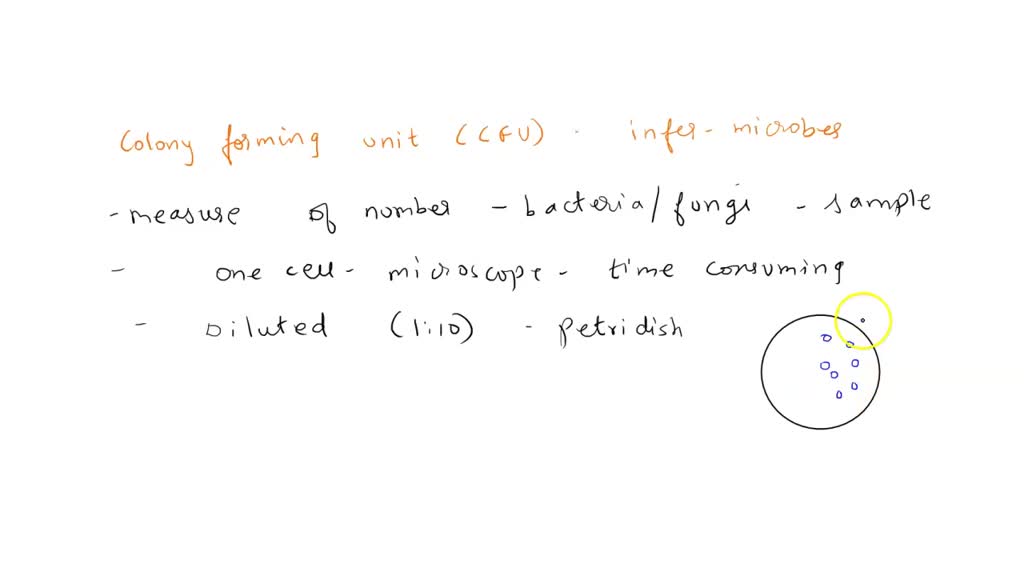 Colony forming unit (CFU) - infer - microbes
- measure of number - bacteria/fungi - sample
- one cell - microscope - time consuming
- Diluted (1:10) - petridish